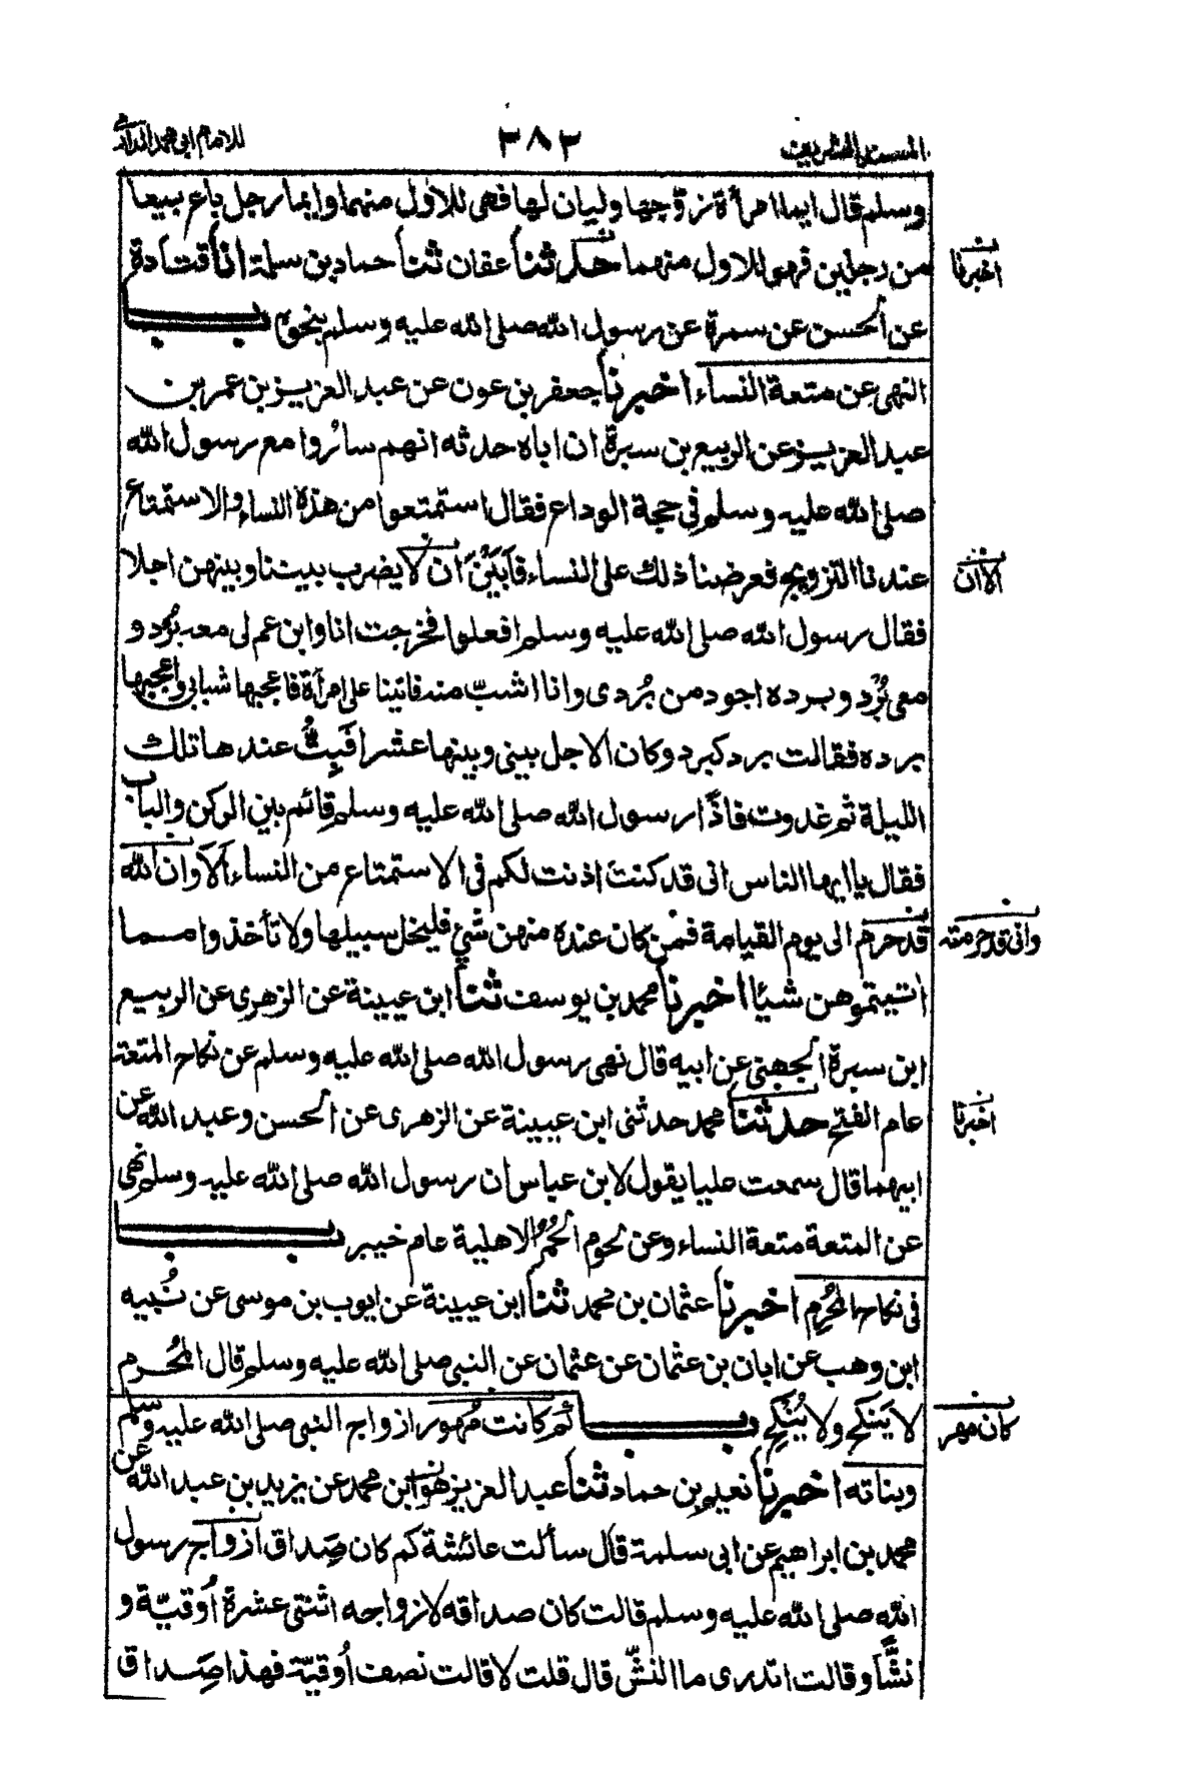 المسند الشريف ٢٨٢ للامام ابى محمد الدارمى
وسلم قال ايما امرأة زوّجها وليان لها فهى للاول منهما وايما رجل باع بيعا
من رجلين فهو للاول منهما حدثنا عفان ثنا حماد بن سلمة انا قتادة
اخبرنا
عن الحسن عن سمرة عن رسول الله صلى الله عليه وسلم بنحوه باب
النهى عن متعة النساء اخبرنا جعفر بن عون عن عبد العزيز بن عمر بن
عبد العزيز عن الربيع بن سبرة ان اباه حدثه انهم سائروا مع رسول الله
صلى الله عليه وسلم فى حجة الوداع فقال استمتعوا من هذه النساء والاستمتاع
عندنا التزويج فعرضنا ذلك على النساء فأبَيْنَ ان لا يضرب بيننا وبينهن اجلا
الا ان
فقال رسول الله صلى الله عليه وسلم افعلوا فخرجت انا وابن عم لى معه بُرد و
معى بُرد وبرده اجود من بُردى وانا اشبّ منه فاتينا على امرأة فاعجبها شبابى واعجبها
برده فقالت برد كبرد وكان الاجل بينى وبينها عشرا فَبِتُّ عندها تلك
الليلة ثم غدوت فاذا رسول الله صلى الله عليه وسلم قائم بين الركن والباب
فقال يا ايها الناس انى قد كنت اذنت لكم فى الاستمتاع من النساء اَلاَ وان الله
قد حرم الى يوم القيامة فمن كان عنده منهن شئ فليخل سبيلها ولا تأخذوا مما
وانى قد حرمته
اتيتموهن شيئا اخبرنا محمد بن يوسف ثنا ابن عيينة عن الزهرى عن الربيع
ابن سبرة الجهنى عن ابيه قال نهى رسول الله صلى الله عليه وسلم عن نكاح المتعة
عام الفتح حدثنا محمد حدثنى ابن عيينة عن الزهرى عن الحسن وعبد الله عن
اخبرنا
ابيهما قال سمعت عليا يقول لابن عباس ان رسول الله صلى الله عليه وسلم نهى
عن المتعة متعة النساء وعن لحوم الحُمُر الاهلية عام خيبر باب
فى نكاح المُحْرِم اخبرنا عثمان بن محمد ثنا ابن عيينة عن ايوب بن موسى عن نُبيه
ابن وهب عن ابان بن عثمان عن عثمان عن النبى صلى الله عليه وسلم قال المُحرم
لا يَنكح ولا يُنْكِح باب كم كانت مُهور ازواج النبى صلى الله عليه وسلم
كان مهر
وبناته اخبرنا نعيم بن حماد ثنا عبد العزيز هو ابن محمد عن يزيد بن عبد الله عن
محمد بن ابراهيم عن ابى سلمة قال سألت عائشة كم كان صِداق ازواج رسول
الله صلى الله عليه وسلم قالت كان صداقه لازواجه اثنتى عشرة اُوقيّة و
نشًّا وقالت اتدرى ما النشّ قال قلت لا قالت نصف اُوقيّة فهذا صِداق